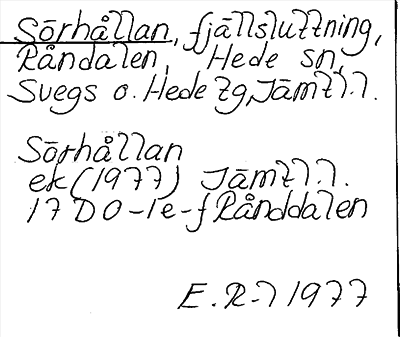 Sörhållan, fjällsluttning,
Råndalen, Hede sn,
Svegs o. Hede tg, Jämtl.l.
Sörhållan
ek (1977) Jämtl.l.
17 D 0-1 e-f Rånddalen
E.R-l 1977